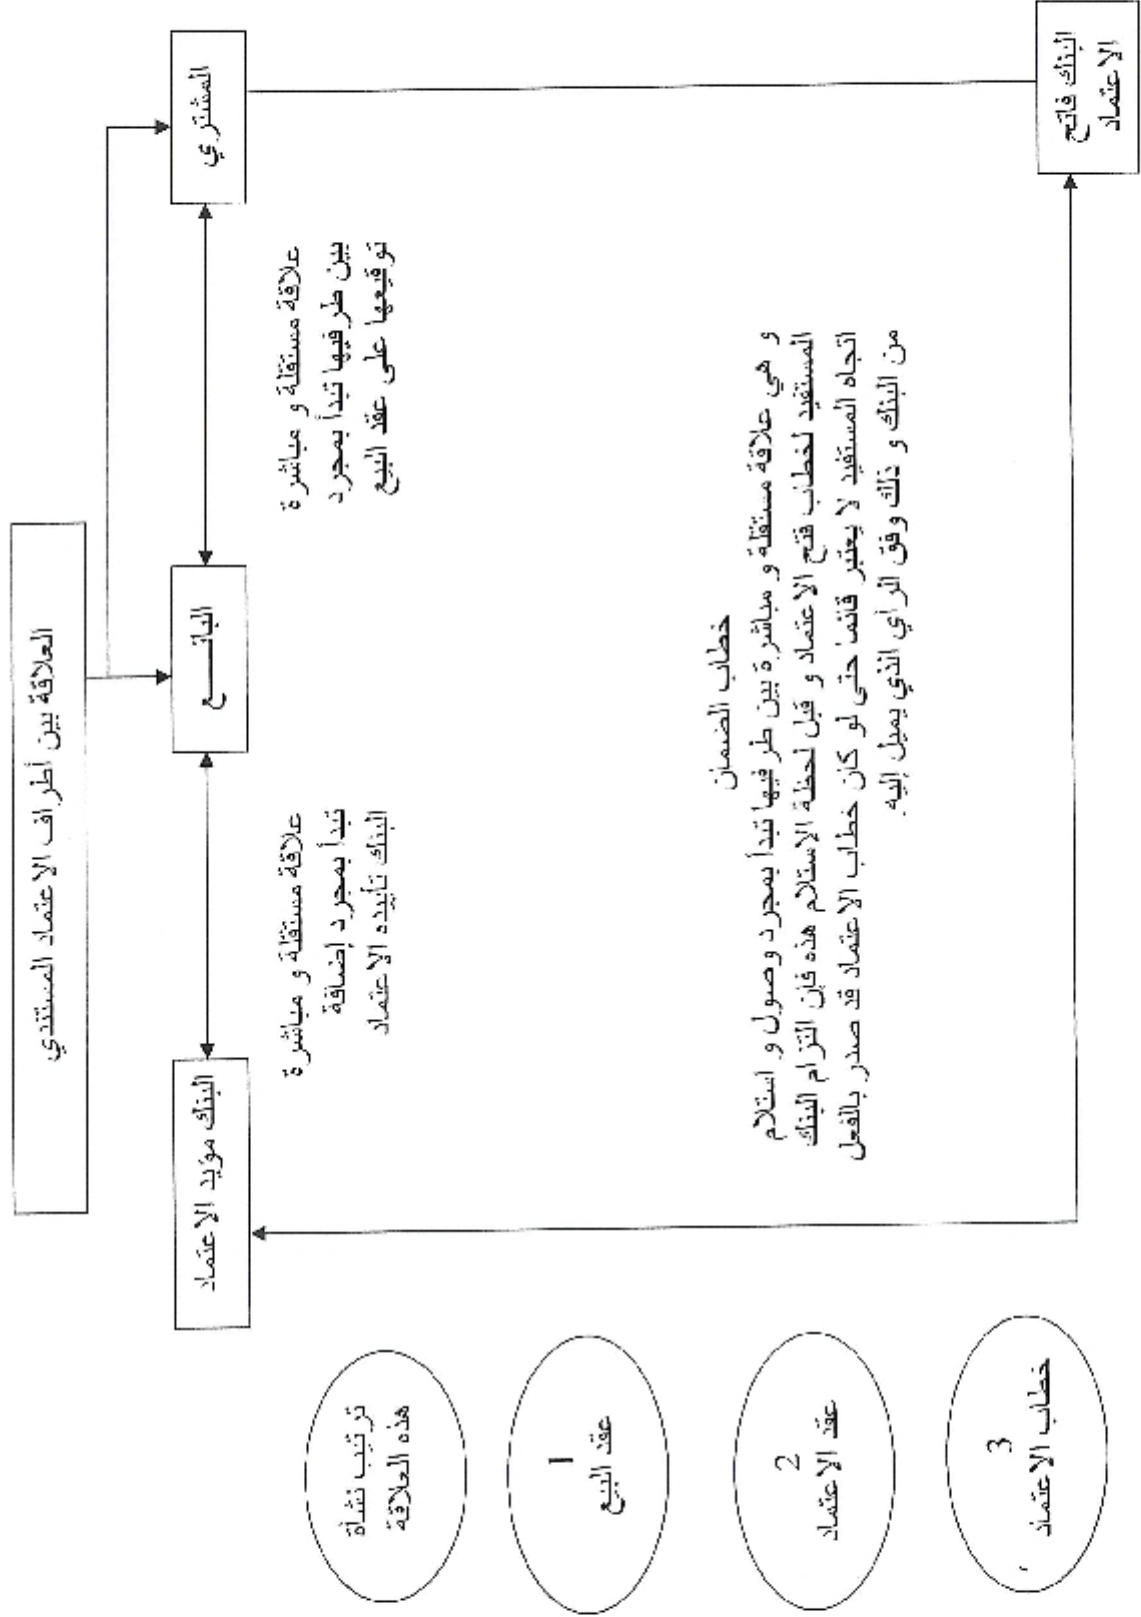 العلاقة بين أطراف الاعتماد المستندي
المشتري
البائـــع
البنك مؤيد الاعتماد
علاقة مستقلة و مباشرة
بين طرفيها تبدأ بمجرد
توقيعها على عقد البيع
علاقة مستقلة و مباشرة
تبدأ بمجرد إضافة
البنك تأييده الاعتماد
خطاب الضمان
و هي علاقة مستقلة و مباشرة بين طرفيها تبدأ بمجرد وصول و استلام
المستفيد لخطاب فتح الاعتماد و قبل لحظة الاستلام هذه فإن التزام البنك
اتجاه المستفيد لا يعتبر قائما حتى لو كان خطاب الاعتماد قد صدر بالفعل
من البنك و ذلك وفق الرأي الذي يميل إليه.
البنك فاتح
الاعتماد
ترتيب نشأة
هذه العلاقة
1
عقد البيع
2
عقد الاعتماد
3
خطاب الاعتماد